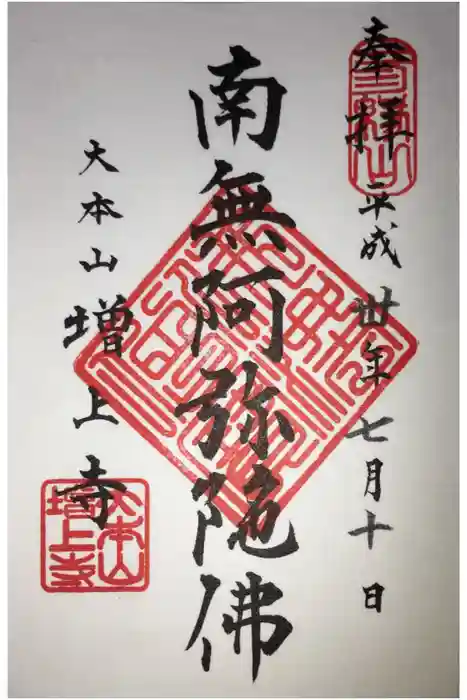 奉拝
平成丗年七月十日
南無阿弥陀佛
大本山増上寺
大本山
増上寺